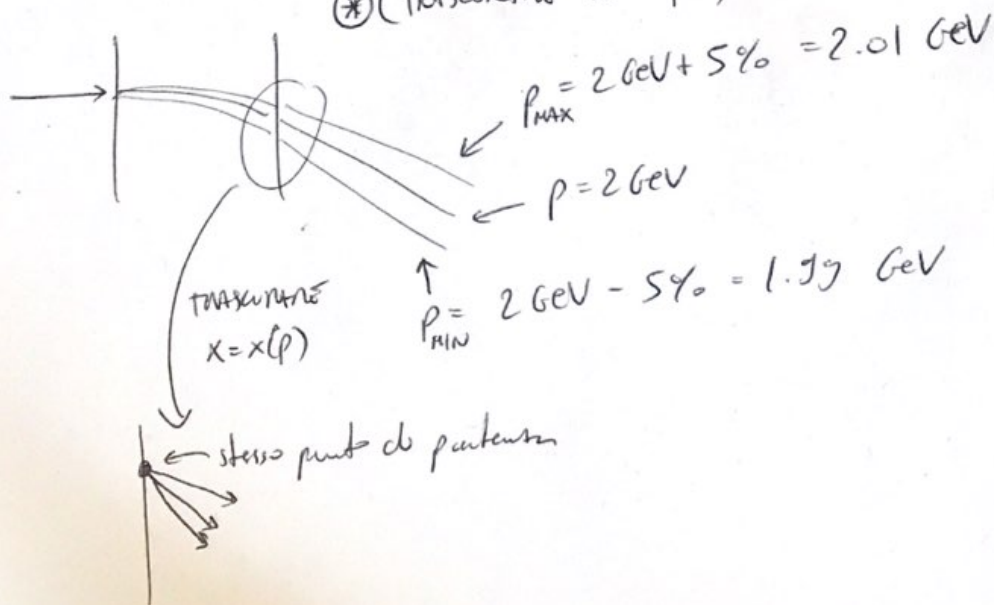 p_MAX = 2 GeV + 5% = 2.01 GeV
p = 2 GeV
p_MIN = 2 GeV - 5% = 1.99 GeV
TRASCURARE
x = x(p)
stesso punto di partenza